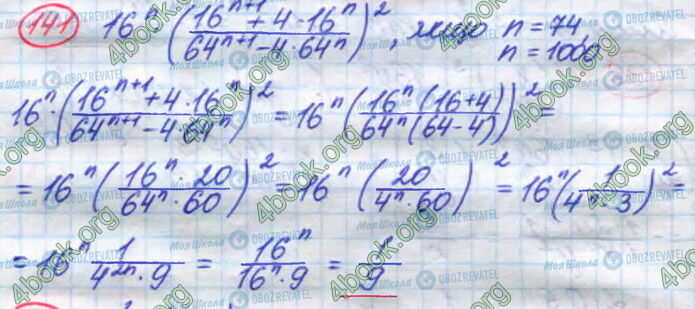 141 16^n ((16^(n+1) + 4·16^n)/(64^(n+1) - 4·64^n))^2, якщо n = 74
n = 1000
16^n·((16^(n+1) + 4·16^n)/(64^(n+1) - 4·64^n))^2 = 16^n((16^n(16+4))/(64^n(64-4)))^2 =
= 16^n((16^n·20)/(64^n·60))^2 = 16^n(20/(4^n·60))^2 = 16^n(1/(4^n·3))^2 =
= 16^n 1/(4^(2n)·9) = 16^n/(16^n·9) = 1/9
4book.org
Моя Школа
OBOZREVATEL